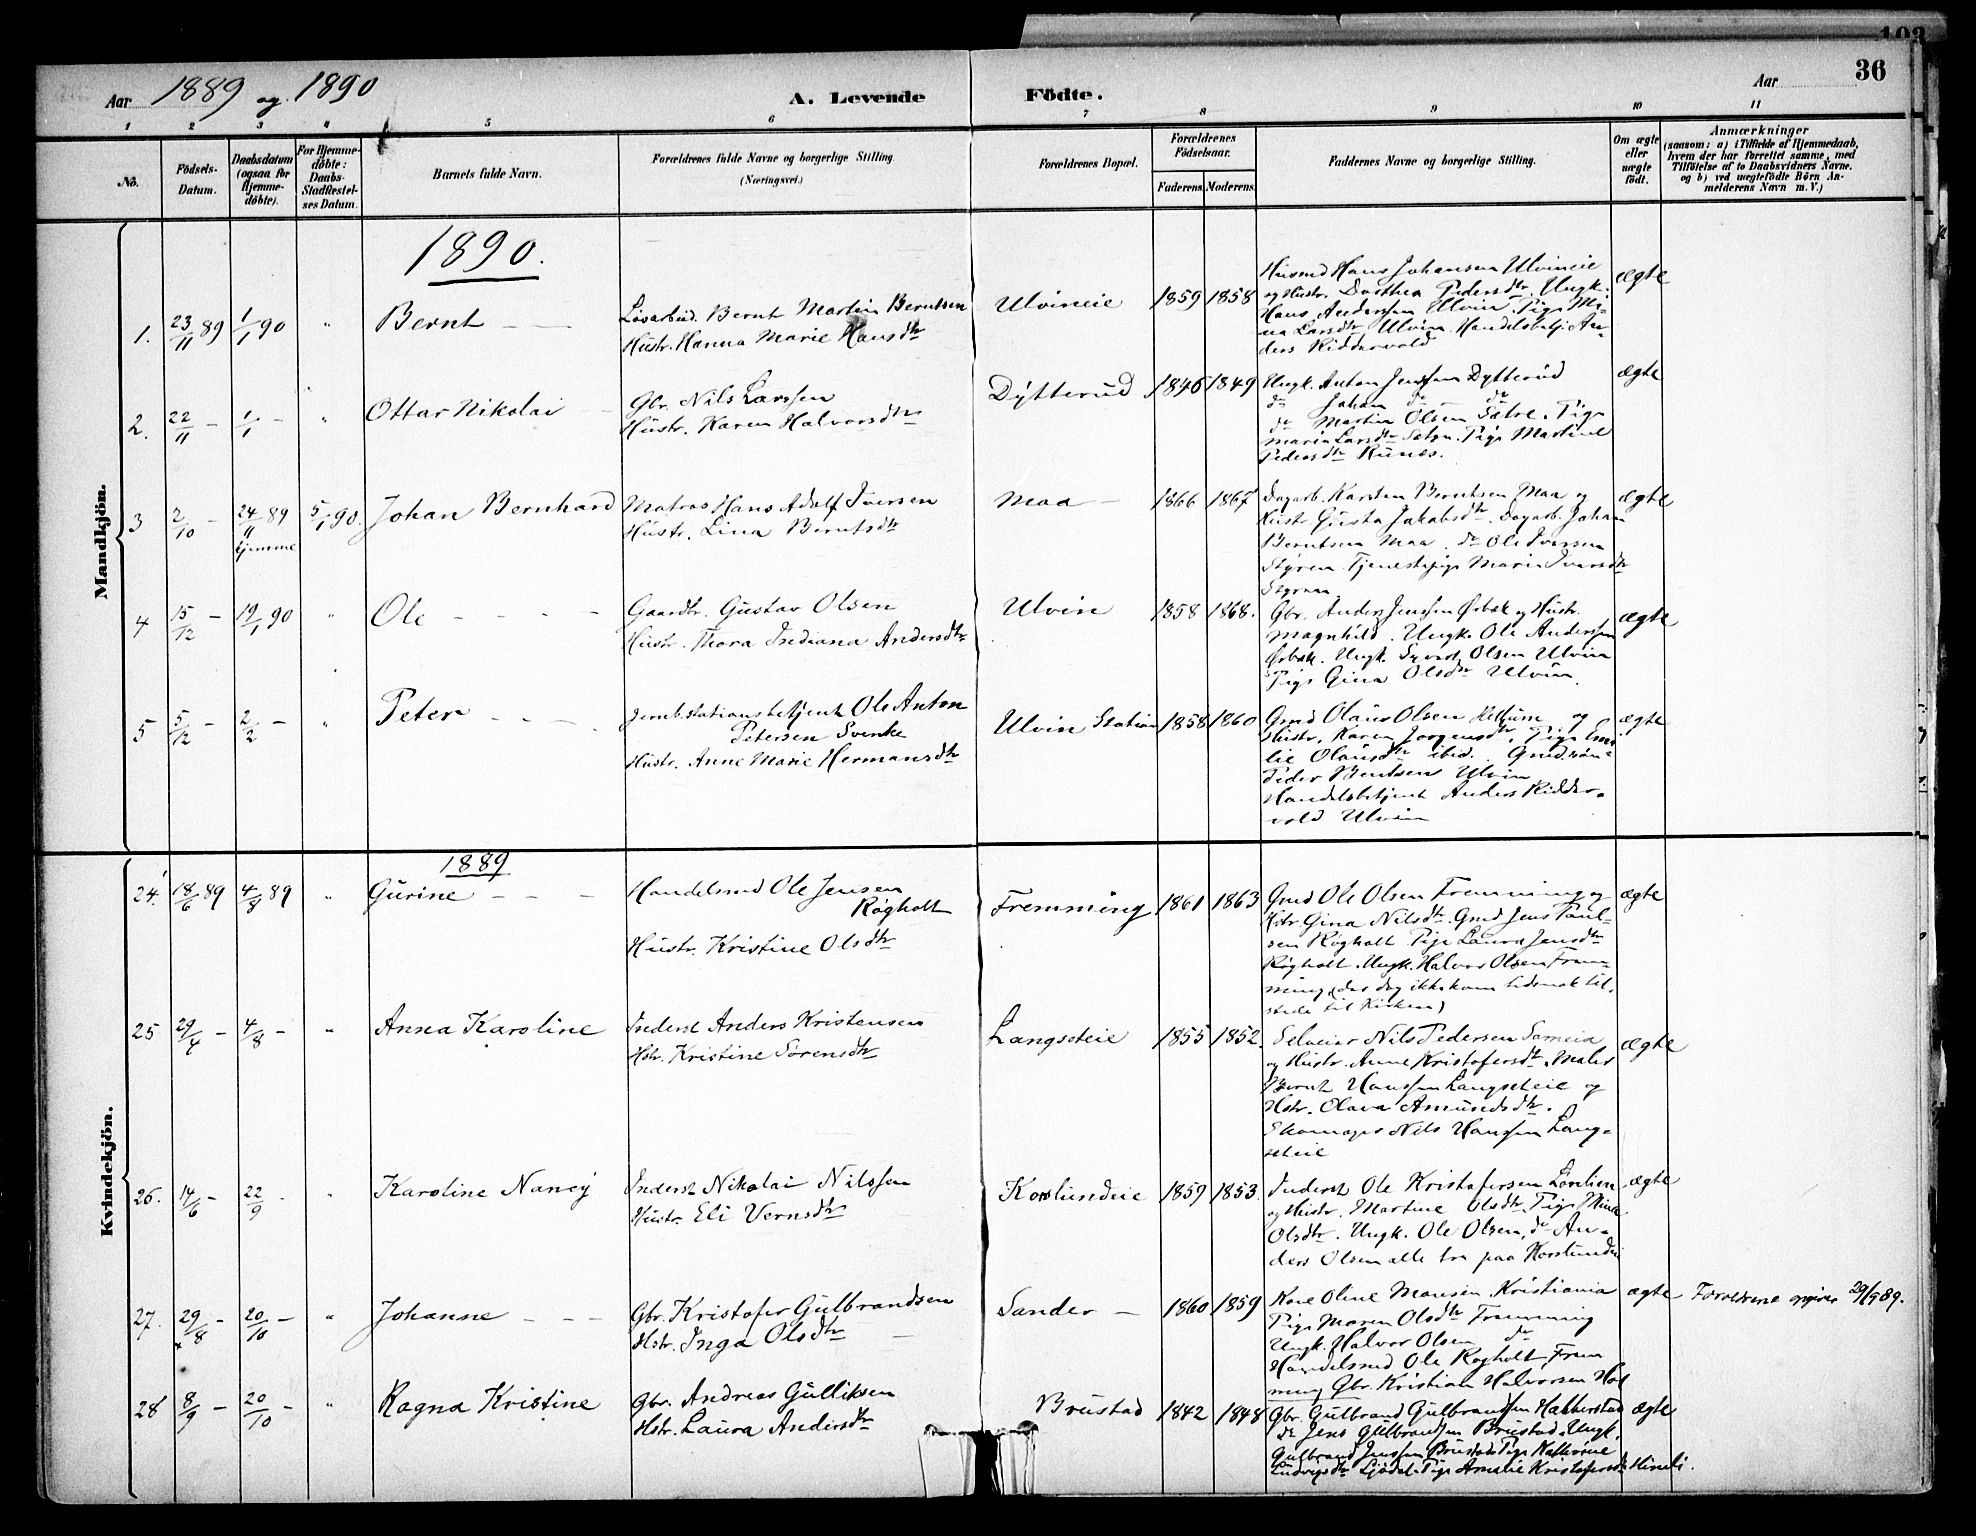 103
36
Aar 1889 og 1890
A. Levende Födte.
Aar
1 2 3 4 5 6 7 8 9 10 11
No.
Födsels-Datum.
Daabsdatum (ogsaa for Hjemme-döbte).
For Hjemme-döbte: Daabs-Stadfæstel-ses Datum.
Barnets fulde Navn.
Forældrenes fulde Navne og borgerlige Stilling
(Næringsvei.)
Forældrenes Bopæl.
Forældrenes Födselsaar.
Faderens. Moderens.
Faddernes Navne og borgerlige Stilling.
Om ægte eller uægte födt.
Anmærkninger
(saasom: a) i Tilfælde af Hjemmedaab, hvem der har forrettet samme, med Tilföielse af to Daabsvidners Navne, og b) ved uægtefödte Börn An-melderens Navn m. V.)
Mandkjön.
1890.
1. 23/11 89 1/1 90 " Bernt
Løsarbeid. Bernt Martin Berntsen
Hustr. Hanna Marie Hansdtr
Ulvineie 1859 1858
Husmd Hans Johansen Ulvineie
og Hustr. Dorthea Pedersdtr. Ungk.
Hans Andersen Ulvin. Pige Mi-
na Larsdtr Ulvin. Handelsbetj. An-
ders Ridderwold
ægte
2. 22/11 - 1/1 - " Ottar Nikolai
Gbr. Nils Larssen
Hustr. Karen Halvorsdtr
Dytterud 1846 1849
Ungk. Anton Jenssen Dytterud
do Johan do do
do Martin Olsen Sætre. Pige
Maria Larsdtr Sætre. Pige Martine
Pedersdtr Runes.
ægte
3 2/10 - 24/11 89 hjemme 5/1 90. Johan Bernhard
Matros Hans Adolf Iversen
Hustr. Lina Berntsdtr
Maa 1866 1867
Dagarb. Karsten Berntsen Maa og
Hustr Gusta Jakobsdtr. Dagarb. Johan
Berntsen Maa. do Ole Iversen
Styren. Tjenestepige Marie Iversdtr
Styren.
ægte
4 15/12 - 19/1 90 " Ole
Gaardbr. Gustav Olsen
Hustr. Thora Indiana Andersdtr
Ulvin 1858 1868.
Gbr. Anders Jenssen Ørbæk og Hustr.
Magnhild. Ungk. Ole Anderssen
Ørbæk. Ungk. Syvert Olsen Ulvin
Pige Gina Olsdtr Ulvin.
ægte
5 5/12 - 2/2 - " Peter
Jernb.stationsbetjent Ole Anton
Petersen Svenke
Hustr. Anne Marie Hermansdtr
Ulvin Station 1858 1860
Gmd Olaus Olsen Helsum og
Hustr. Karen Jørgensdtr. Pige Emi
lie Olausdtr ibid. Gmdsøn-
Peder Bentsen Ulvin
Handelsbetjent Anders Ridder-
vold Ulvin
ægte
Kvindekjön.
1889
24. 18/6 89 4/8 89 " Gurine
Handelsmd Ole Jensen
Røgholt
Hustr. Kristine Olsdtr
Fremming 1861 1863
Gmd Ole Olsen Fremming og
Hstr Gina Nilsdtr. Gmd Jens Paul-
sen Røgholt Pige Laura Jensdtr
Røgholt. Ungk. Halvor Olsen Frem-
ming (der dog ikke kom tidsnok til-
stede til Kirken)
ægte
25 29/4 - 4/8 - " Anna Karoline
Inderst Anders Kristensen
Hstr. Kristine Sørensdtr
Langseteie 1855 1852.
Selveier Nils Pedersen
og Hustr. Anne Kristofersdtr. Maler
Bernt Hanssen Langseteie og
Hstr. Olava Amundsdtr.
Skomager Nils Hanssen Lang-
seteie
ægte
26. 14/6 - 22/9 " Karoline Nancy
Inderst Nikolai Nilssen
Hustr. Eli Vernsdtr
Korslundeie 1859 1853
Inderst Ole Kristofersen
og Hustr. Martine Olsdtr. Pige
Olsdtr. Ungk. Ole Olsen, do An-
ders Olsen alle tre paa Korslundeie
ægte
27. 29/8 - 20/10 - " Johanne
Gbr. Kristofer Gulbrandsen
Hstr. Inga Olsdtr
Sander 1860 1859
Kone Oline Monsen, Kristiania
Pige Maren Olsdtr Fremming
Ungk. Halvor Olsen do
Handelsmd Ole Rogholt Frem
ming Gbr. Kristian Halvorsen Hol
ægte
Forældrene opgiver 29/9 89.
28 8/9 - 20/10 - " Ragna Kristine
Gbr. Andreas Gulliksen
Hstr. Laura Andersdtr
Brustad 1842 1848
Gbr. Gulbrand Gulbrandsen Habberstad
do Jens Gulbrandsen Brustad. Ungk.
Gulbrand Jenssen Brustad. Pige Kathrine
Ludvigsdtr Ljødal. Pige Amalie Kristofersdtr Himli.
ægte